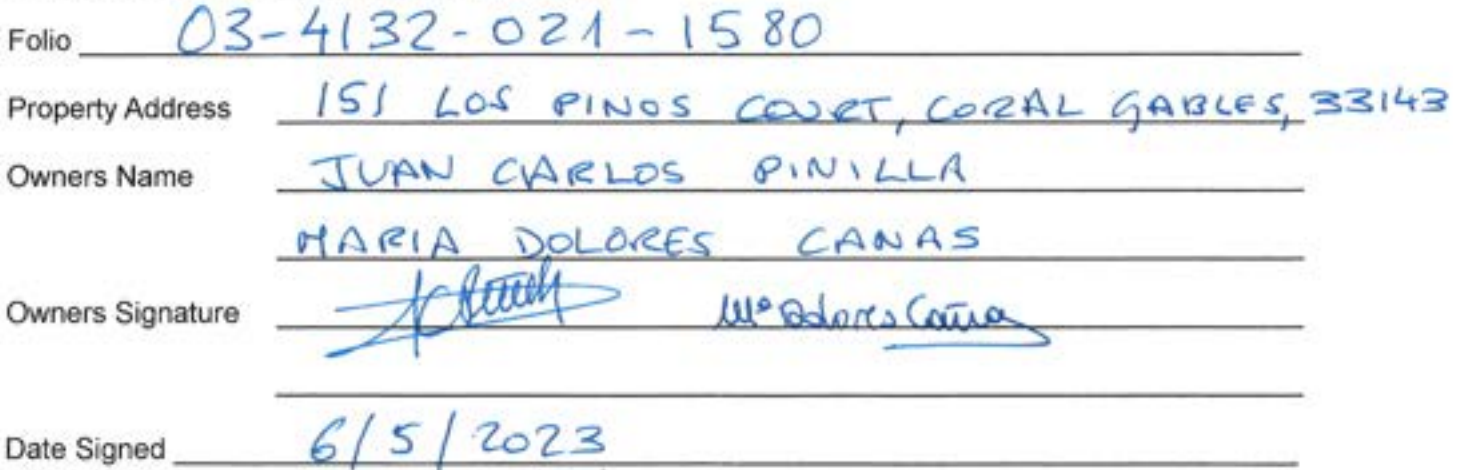 Folio 03-4132-021-1580
Property Address 151 LOS PINOS COURT, CORAL GABLES, 33143
Owners Name JUAN CARLOS PINILLA
MARIA DOLORES CANAS
Owners Signature Mª Dolores Cañas
Date Signed 6/5/2023